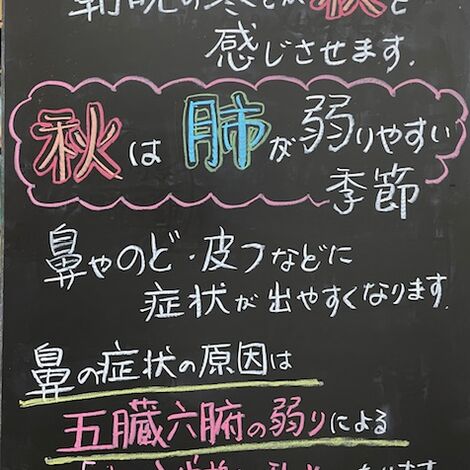 朝晩の寒さが秋を
感じさせます.
秋は肺が弱りやすい
季節
鼻やのど・皮フなどに
症状が出やすくなります.
鼻の症状の原因は
五臓六腑の弱りによる